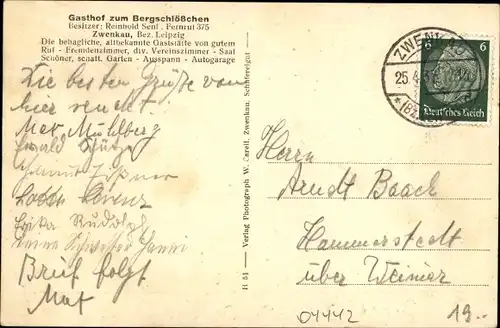 Gasthof zum Bergschlößchen
Besitzer: Reinhold Senf, Fernruf 375
Zwenkau, Bez. Leipzig
Die behagliche, altbekannte Gaststätte von gutem
Ruf - Fremdenzimmer, div. Vereinszimmer - Saal
Schöner, schatt. Garten - Ausspann - Autogarage
Die besten Grüße von
hier sendet:
Max Mühlberg
Ewald Schütze
Lotte Lorenz
Erika Rudolph
Brief folgt
Max
H 51 — Verlag Photograph W. Careil, Zwenkau, Schäfereigut
ZWENKAU
25.4.37
6 6
Deutsches Reich
Herrn
Arndt Baach
Hammerstedt
über Weimar
04442
19.-